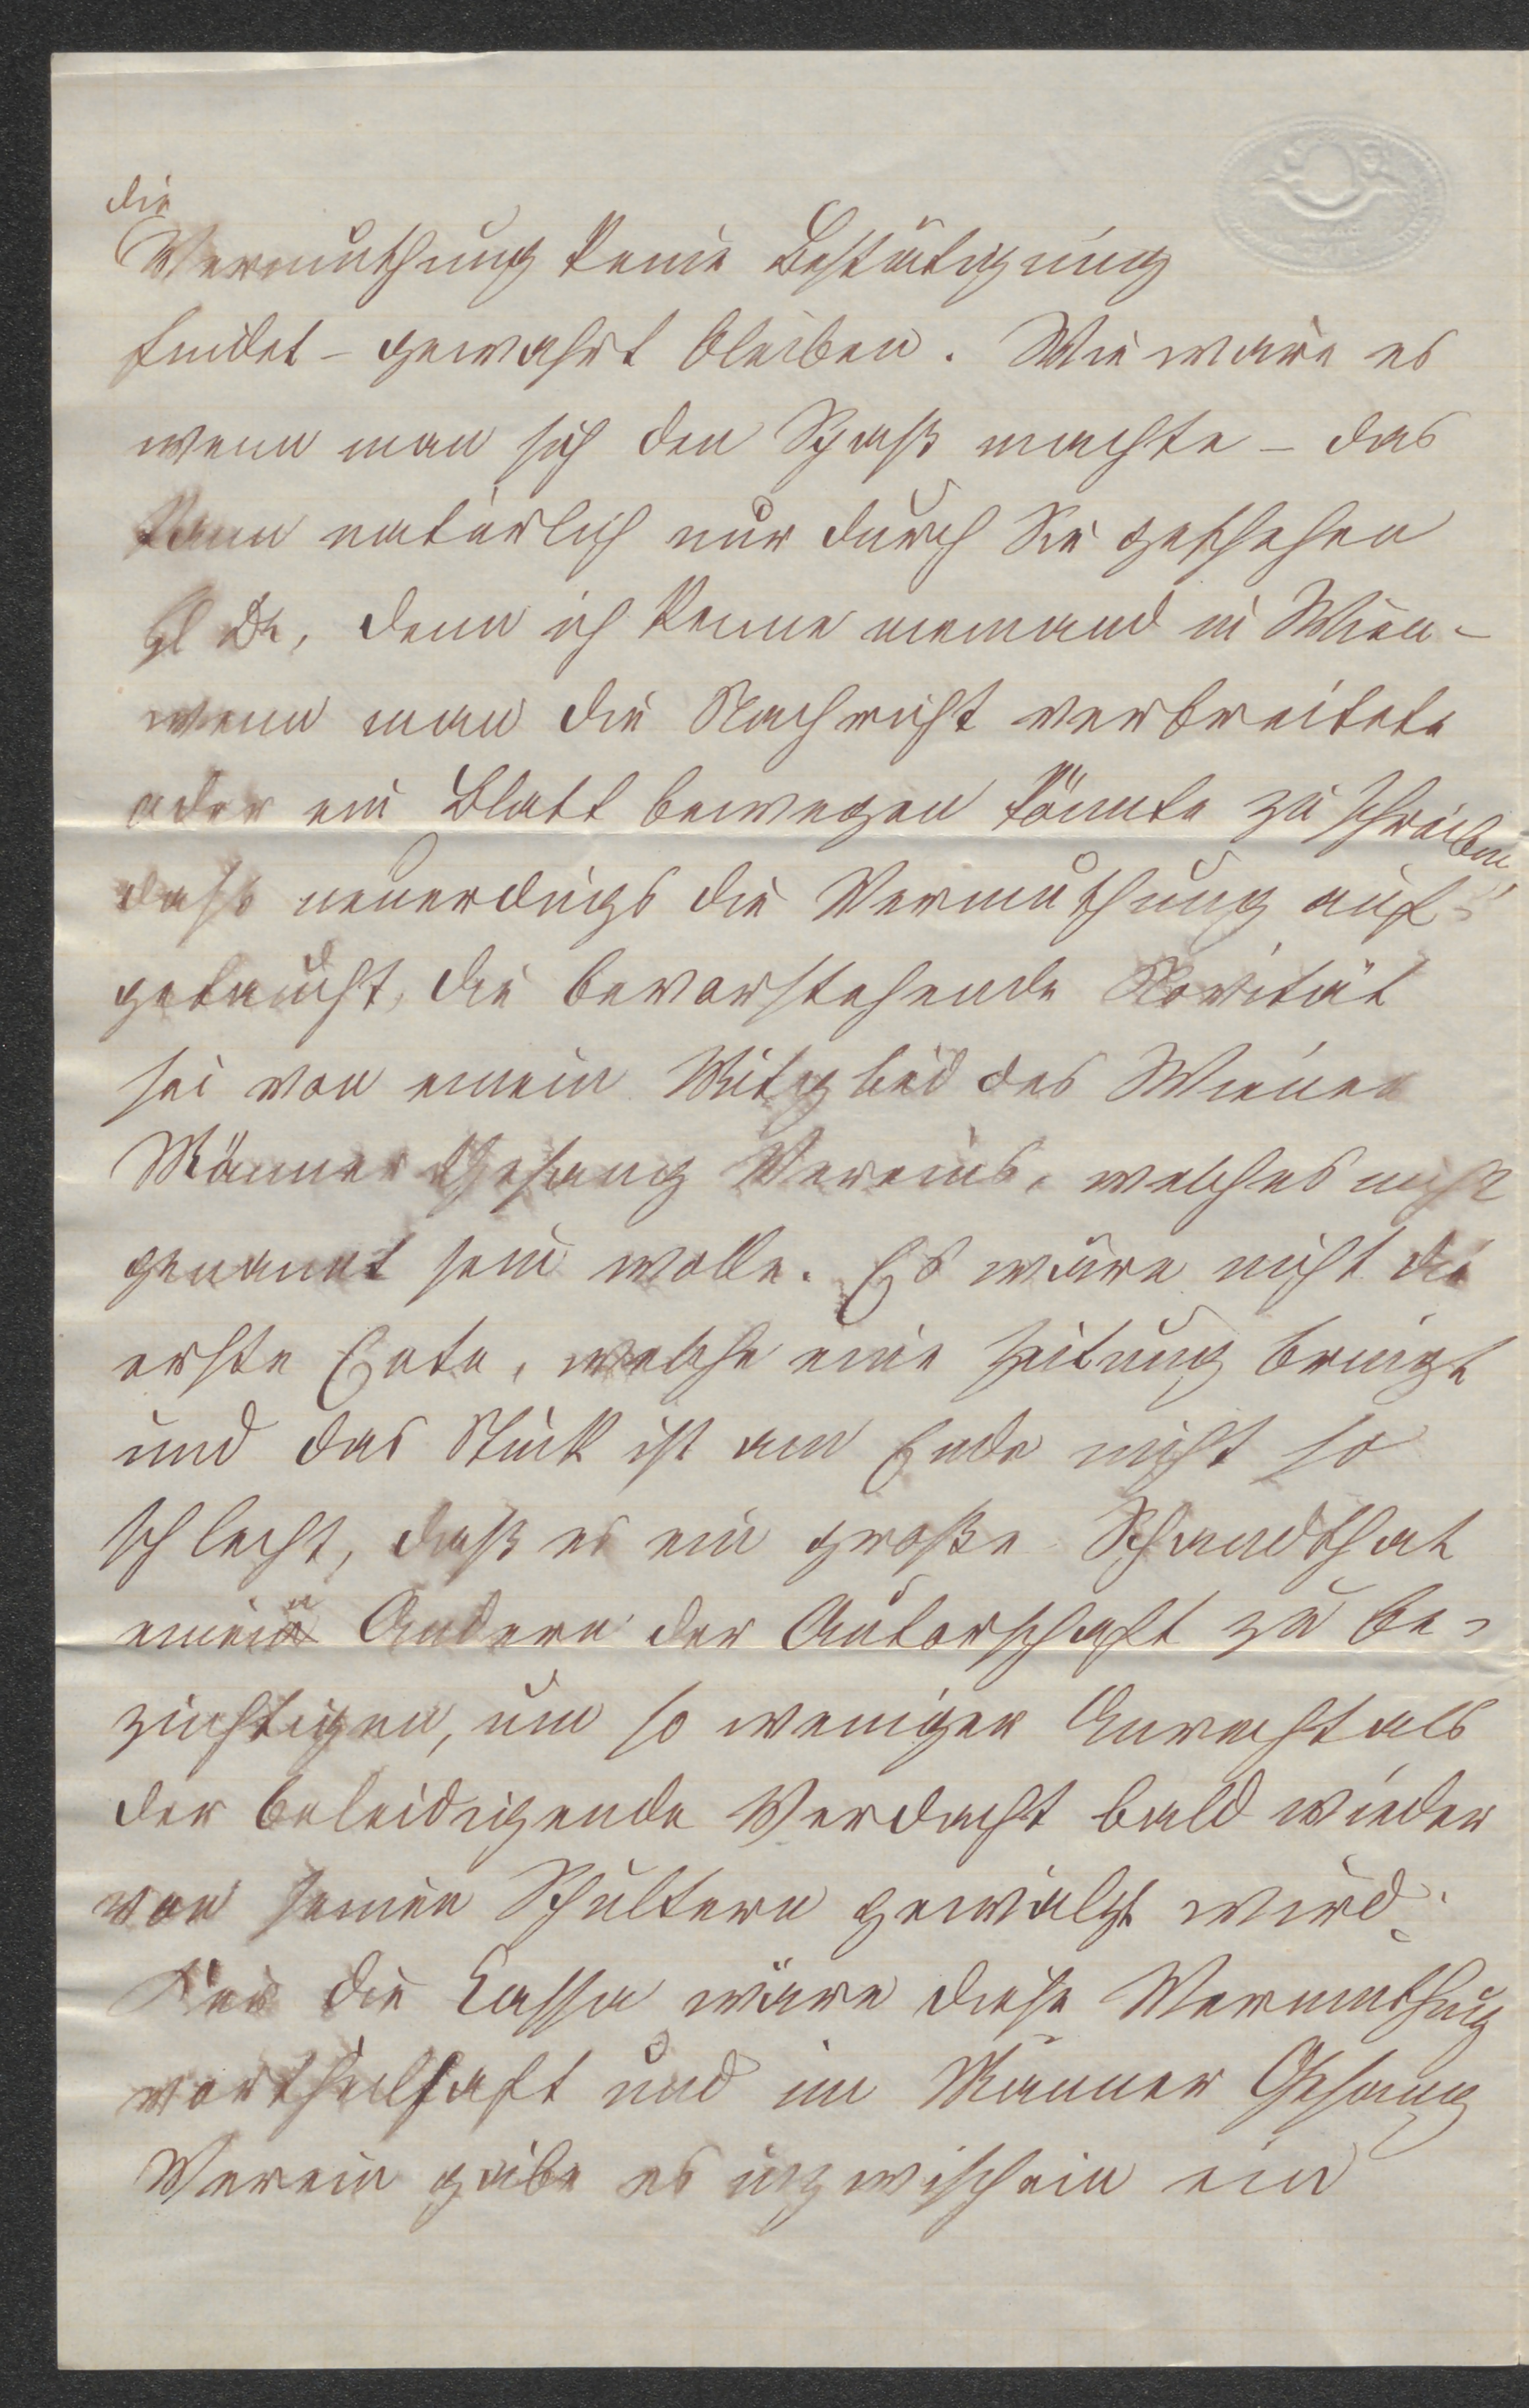 die
Vermuthung keine Bestätigung
findet – gewahrt bleiben. Wie wäre es
wenn man sich den Spaß machte – das
kann natürlich nur durch Sie geschehen
denn ich kenne niemand in Wien –
wenn man die Nachricht verbreitete
oder ein Blatt bewegen könnte zu schreiben,
dass neuerdings die Vermuthung auf-
getaucht, die bevorstehende Novität
sei von einem Mitglied des Wiener
Männer Gesang Vereins, welches nicht
genannt sein wolle. Es wäre nicht die
erste Ente, welche eine Zeitung bringt
und das Stück ist am Ende nicht so
schlecht, daß es ein große Schandthat
einen Andern der Autorschaft zu be-
zichtigen, um so weniger Unrecht als
der beleidigende Verdacht bald wieder
von seinen Schultern gewälzt wird.
Für die Cassa wäre diese Vermuthung
vortheilhaft und im Männer Gesang
Verein gäbe es inzwischen ein